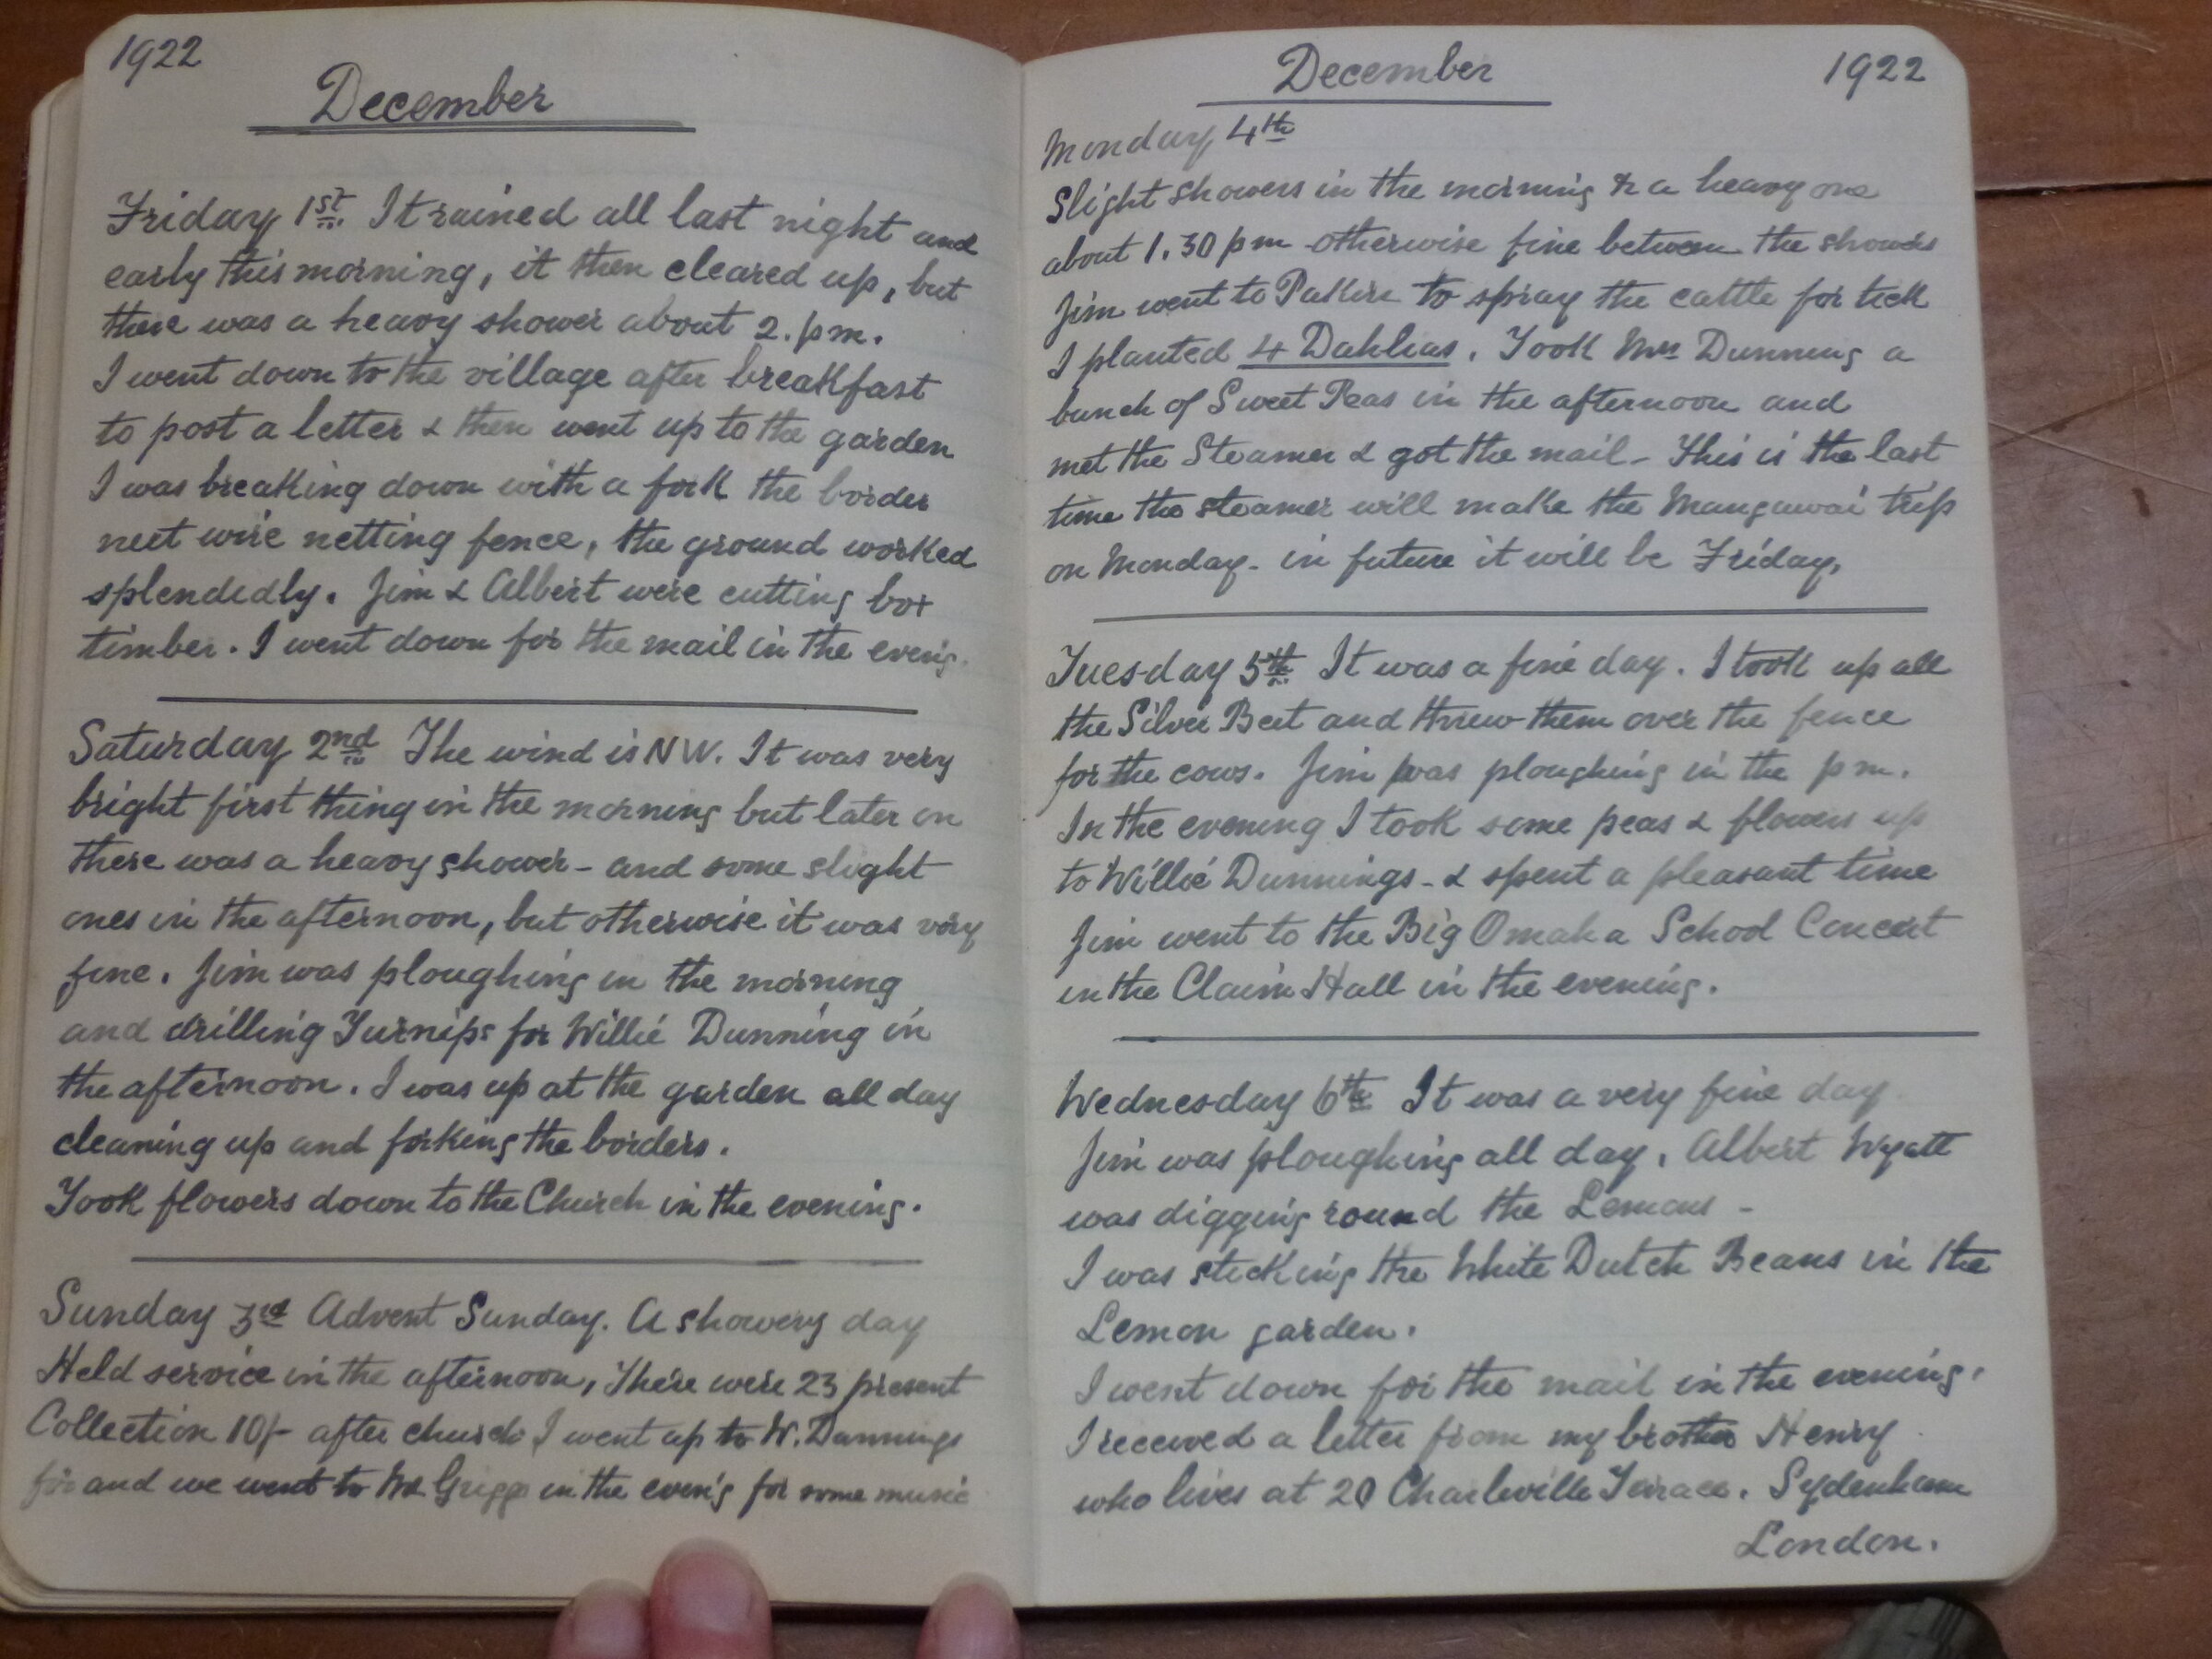 1922
December
Friday 1st. It rained all last night and
early this morning, it then cleared up, but
there was a heavy shower about 2.pm.
I went down to the village after breakfast
to post a letter & then went up to the garden
I was breaking down with a fork the border
next wire netting fence, the ground worked
splendedly. Jim & Albert were cutting box
timber. I went down for the mail in the eveng.
Saturday 2nd The wind is NW. It was very
bright first thing in the morning but later on
there was a heavy shower - and some slight
ones in the afternoon, but otherwise it was very
fine. Jim was ploughing in the morning
and drilling Turnips for Willie Dunning in
the afternoon. I was up at the garden all day
cleaning up and forking the borders.
Took flowers down to the Church in the evening.
Sunday 3rd Advent Sunday. A showery day
Held service in the afternoon, There were 23 present
Collection 10/- after church I went up to W. Dunnings
for and we went to Mr Griggs in the eveng for some music
December 1922
Monday 4th
Slight showers in the morning & a heavy one
about 1.30 pm otherwise fine between the showers
Jim went to Pakiri to spray the cattle for tick
I planted 4 Dahlias. Took Mrs Dunning a
bunch of Sweet Peas in the afternoon and
met the Steamer & got the mail - This is the last
time the steamer will make the Mangawai trip
on Monday - in future it will be Friday.
Tuesday 5th It was a fine day. I took up all
the Silver Beet and threw them over the fence
for the cows. Jim was ploughing in the pm.
In the evening I took some peas & flowers up
to Willie Dunnings - & spent a pleasant time
Jim went to the Big Omaha School Concert
in the Claim Hall in the evening.
Wednesday 6th It was a very fine day
Jim was ploughing all day. Albert Wyatt
was digging round the Lemons -
I was sticking the White Dutch Beans in the
Lemon garden.
I went down for the mail in the evening.
I received a letter from my brother Henry
who lives at 20 Charleville Terrace. Sydenham
London.